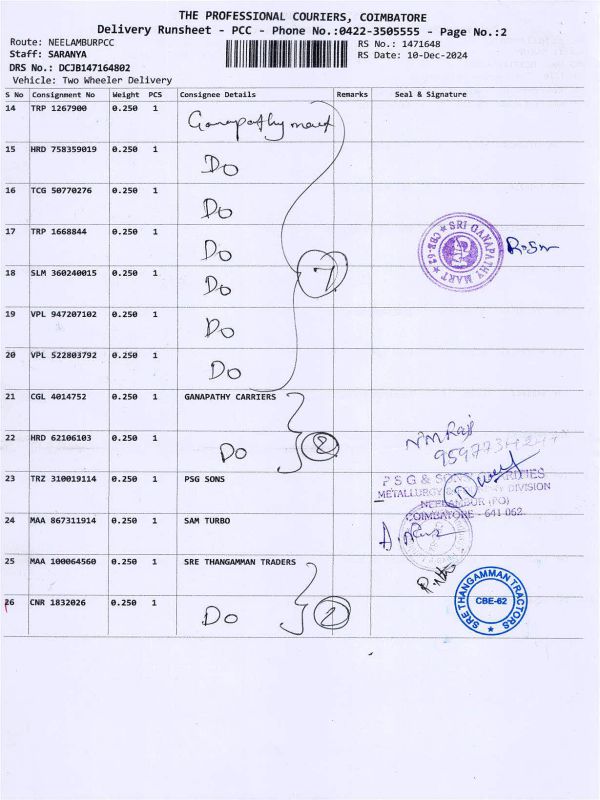 THE PROFESSIONAL COURIERS, COIMBATORE
Delivery Runsheet - PCC - Phone No.:0422-3505555 - Page No.:2
Route: NEELAMBURPCC RS No.: 1471648
Staff: SARANYA RS Date: 10-Dec-2024
DRS No.: DCJB147164802
Vehicle: Two Wheeler Delivery
S No Consignment No Weight PCS Consignee Details Remarks Seal & Signature
14 TRP 1267900 0.250 1 Ganapathy mart
15 HRD 758359019 0.250 1 Do
16 TCG 50770276 0.250 1 Do
17 TRP 1668844 0.250 1 Do
SRI GANAPATHY MART ★ CBE-62 ★
18 SLM 360240015 0.250 1 Do 7
19 VPL 947207102 0.250 1 Do
20 VPL 522803792 0.250 1 Do
21 CGL 4014752 0.250 1 GANAPATHY CARRIERS
22 HRD 62106103 0.250 1 Do 2
23 TRZ 310019114 0.250 1 PSG SONS
PSG & SONS CHARITIES
METALLURGY & FOUNDRY DIVISION
NEELAMBUR (PO)
COIMBATORE - 641 062.
24 MAA 867311914 0.250 1 SAM TURBO
25 MAA 100064560 0.250 1 SRE THANGAMMAN TRADERS
26 CNR 1832026 0.250 1 Do 2
SRE THANGAMMAN TRACTORS ★
CBE-62